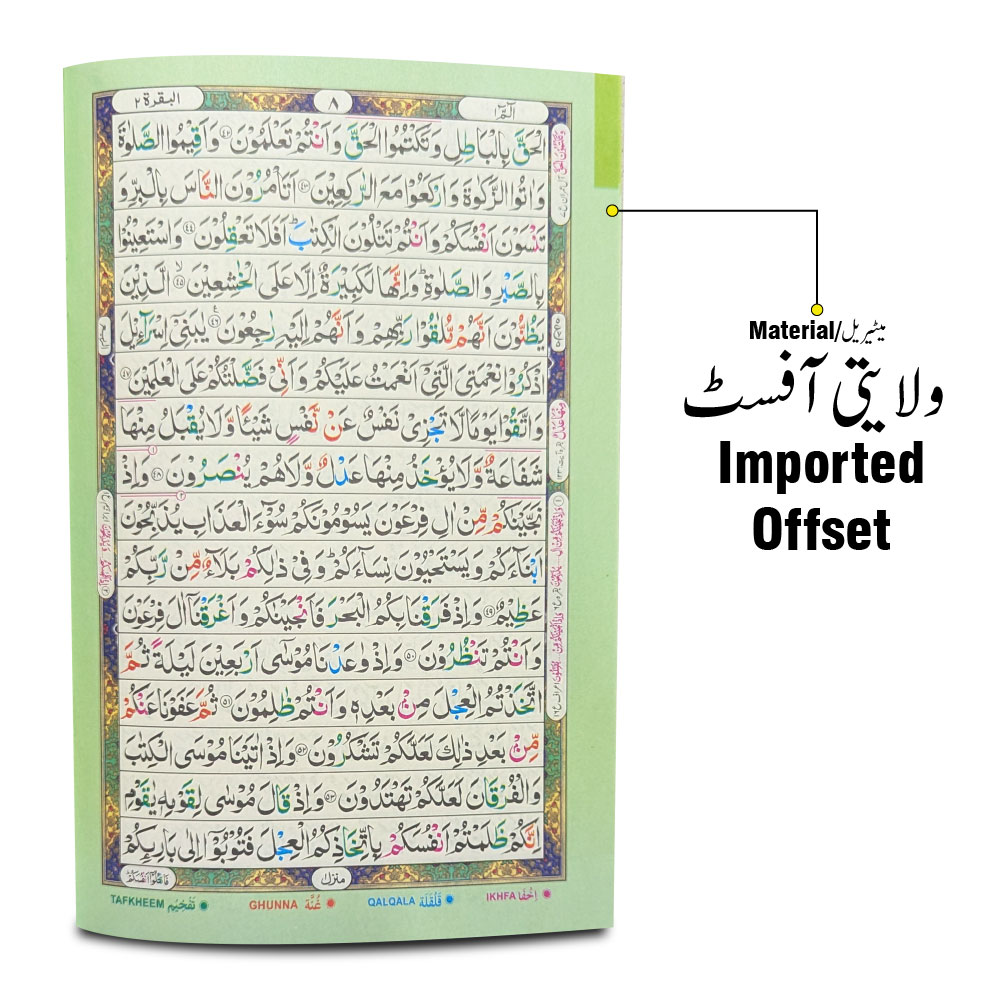 البقرة ٢
٨
الٓمّٓ ١
الْحَقَّ بِالْبَاطِلِ وَتَكْتُمُوا الْحَقَّ وَاَنْتُمْ تَعْلَمُوْنَ ﴿٤٢﴾ وَاَقِيْمُوا الصَّلٰوةَ
وَاٰتُوا الزَّكٰوةَ وَارْكَعُوْا مَعَ الرّٰكِعِيْنَ ﴿٤٣﴾ اَتَاْمُرُوْنَ النَّاسَ بِالْبِرِّ وَ
تَنْسَوْنَ اَنْفُسَكُمْ وَاَنْتُمْ تَتْلُوْنَ الْكِتٰبَ ؕ اَفَلَا تَعْقِلُوْنَ ﴿٤٤﴾ وَاسْتَعِيْنُوْا
بِالصَّبْرِ وَالصَّلٰوةِ ؕ وَاِنَّهَا لَكَبِيْرَةٌ اِلَّا عَلَى الْخٰشِعِيْنَ ﴿٤٥﴾ۙ الَّذِيْنَ
يَظُنُّوْنَ اَنَّهُمْ مُّلٰقُوْا رَبِّهِمْ وَاَنَّهُمْ اِلَيْهِ رٰجِعُوْنَ ﴿٤٦﴾ يٰبَنِيْٓ اِسْرَآءِيْلَ
اذْكُرُوْا نِعْمَتِيَ الَّتِيْٓ اَنْعَمْتُ عَلَيْكُمْ وَاَنِّيْ فَضَّلْتُكُمْ عَلَى الْعٰلَمِيْنَ ﴿٤٧﴾
وَاتَّقُوْا يَوْمًا لَّا تَجْزِيْ نَفْسٌ عَنْ نَّفْسٍ شَيْـًٔا وَّلَا يُقْبَلُ مِنْهَا
شَفَاعَةٌ وَّلَا يُؤْخَذُ مِنْهَا عَدْلٌ وَّلَا هُمْ يُنْصَرُوْنَ ﴿٤٨﴾ وَاِذْ
نَجَّيْنٰكُمْ مِّنْ اٰلِ فِرْعَوْنَ يَسُوْمُوْنَكُمْ سُوْٓءَ الْعَذَابِ يُذَبِّحُوْنَ
اَبْنَآءَكُمْ وَيَسْتَحْيُوْنَ نِسَآءَكُمْ ؕ وَفِيْ ذٰلِكُمْ بَلَآءٌ مِّنْ رَّبِّكُمْ
عَظِيْمٌ ﴿٤٩﴾ وَاِذْ فَرَقْنَا بِكُمُ الْبَحْرَ فَاَنْجَيْنٰكُمْ وَاَغْرَقْنَآ اٰلَ فِرْعَوْنَ
وَاَنْتُمْ تَنْظُرُوْنَ ﴿٥٠﴾ وَاِذْ وٰعَدْنَا مُوْسٰٓى اَرْبَعِيْنَ لَيْلَةً ثُمَّ
اتَّخَذْتُمُ الْعِجْلَ مِنْۢ بَعْدِهٖ وَاَنْتُمْ ظٰلِمُوْنَ ﴿٥١﴾ ثُمَّ عَفَوْنَا عَنْكُمْ
مِّنْۢ بَعْدِ ذٰلِكَ لَعَلَّكُمْ تَشْكُرُوْنَ ﴿٥٢﴾ وَاِذْ اٰتَيْنَا مُوْسَى الْكِتٰبَ
وَالْفُرْقَانَ لَعَلَّكُمْ تَهْتَدُوْنَ ﴿٥٣﴾ وَاِذْ قَالَ مُوْسٰى لِقَوْمِهٖ يٰقَوْمِ
اِنَّكُمْ ظَلَمْتُمْ اَنْفُسَكُمْ بِاتِّخَاذِكُمُ الْعِجْلَ فَتُوْبُوْٓا اِلٰى بَارِئِكُمْ
منزل ١
TAFKHEEM تَفْخِيْم GHUNNA غُنَّة QALQALA قَلْقَلَة IKHFA اِخْفَا
Material/میٹیریل
ولایتی آفسٹ
Imported
Offset